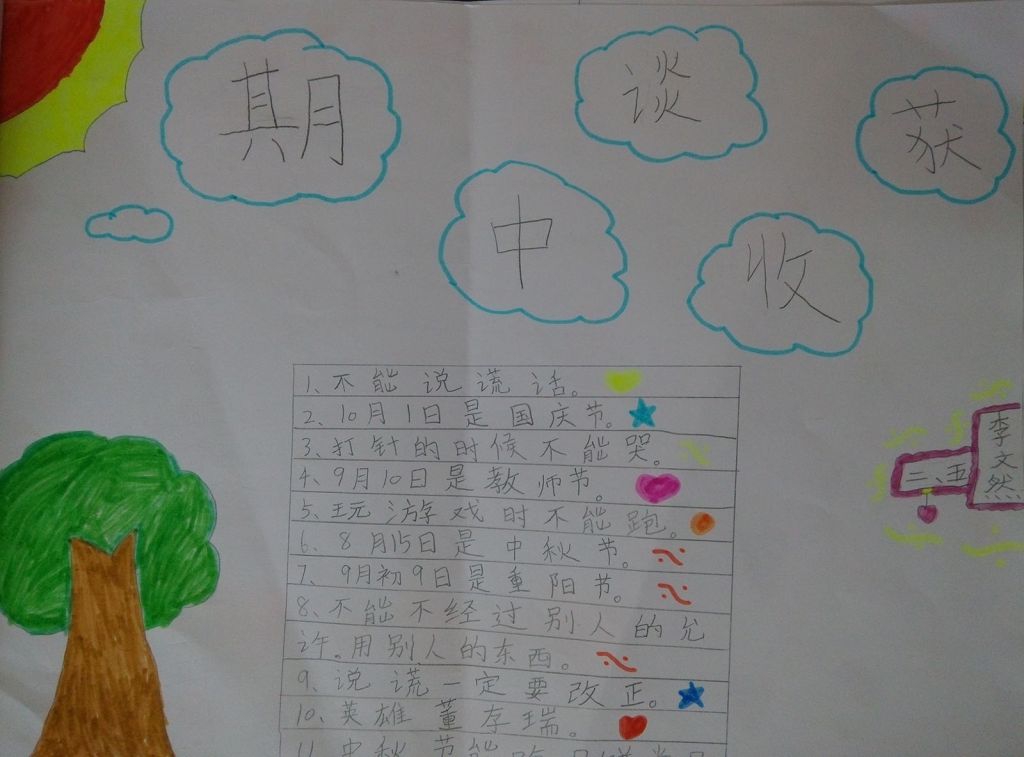 期中谈收获
1、不能说谎话。
2、10月1日是国庆节。
3、打针的时候不能哭。
4、9月10日是教师节。
5、玩游戏时不能跑。
6、8月15日是中秋节。
7、9月初9日是重阳节。
8、不能不经过别人的允
许。用别人的东西。
9、说谎一定要改正。
10、英雄董存瑞。
11、中秋节能吃月饼赏月
二、五
李文然